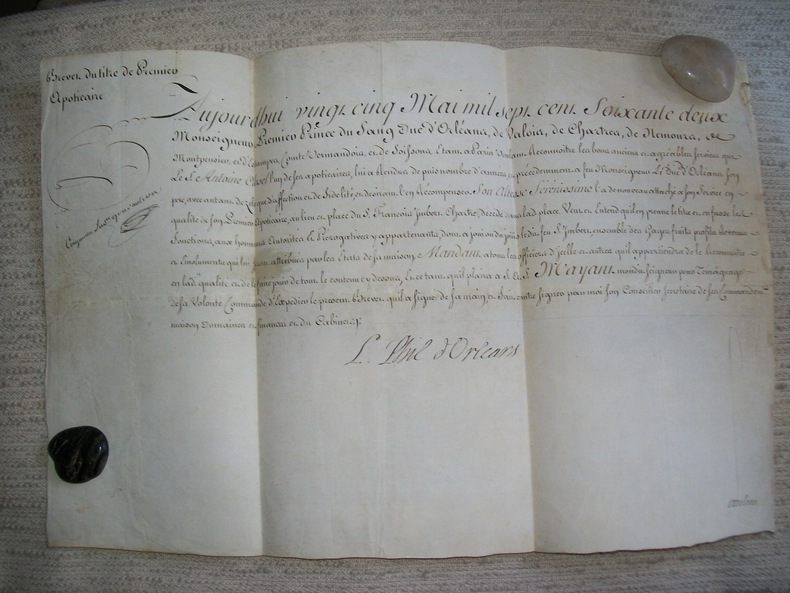 Brevet du titre de Premier
Apoticaire
Aujourdhui vingt cinq Mai mil sept cent Soixante deux
Monseigneur, Premier Prince du Sang Duc d'Orléans, de Valois, de Chartres, de Nemours, et
Montpensier, Comte Vermandois, et de Soissons, Etant a Paris Voulant Reconnoitre les bons anciens et agréables services que
Le S. Antoine l'un de ses apoticaires, lui a Rendus depuis nombre d'années, et precedemment a feu Monseigneur Le Duc d'Orléans Son
pere, avec autant de zele que d'affection et de fidelité, et desirant l'en Recompenser, Son Altesse Serenissime l'a de nouveau attaché a son Service en
qualité de son Premier Apoticaire, au lieu et place du S. François Imbert decedé a la place. Veut et Entend qu'il en prenne le titre et en fasse les
fonctions, aux honneurs Autorités et Prerogatives y appartenants, dont a joui ou du jouir ledit feu S. Imbert, ensemble des Gages fruits profits revenus
et Emoluments qui lui attribués par les Etats de sa maison, Mandant a tous les officiers d'icelle et autres qu'il appartiendra de le reconnoitre
en lad. qualité et de jouir de tout le contenu cy dessus, Et ce tant qu'il plaira a S. A. S. M'ayant mondit seigneur pour temoignage
de sa Volonté Commandé d'Expedier le present Brevet, qu'il a signé de sa main et fait contre signer par moi son Conseiller secretaire de ses Commandemens
maison Domaines et finances et du Cabinet
L. Phil d'Orleans